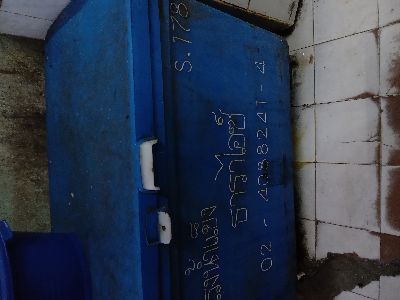 S.178
รงน้ำแข็ง
ธาราไอซ์
02 - 4088241 - 4